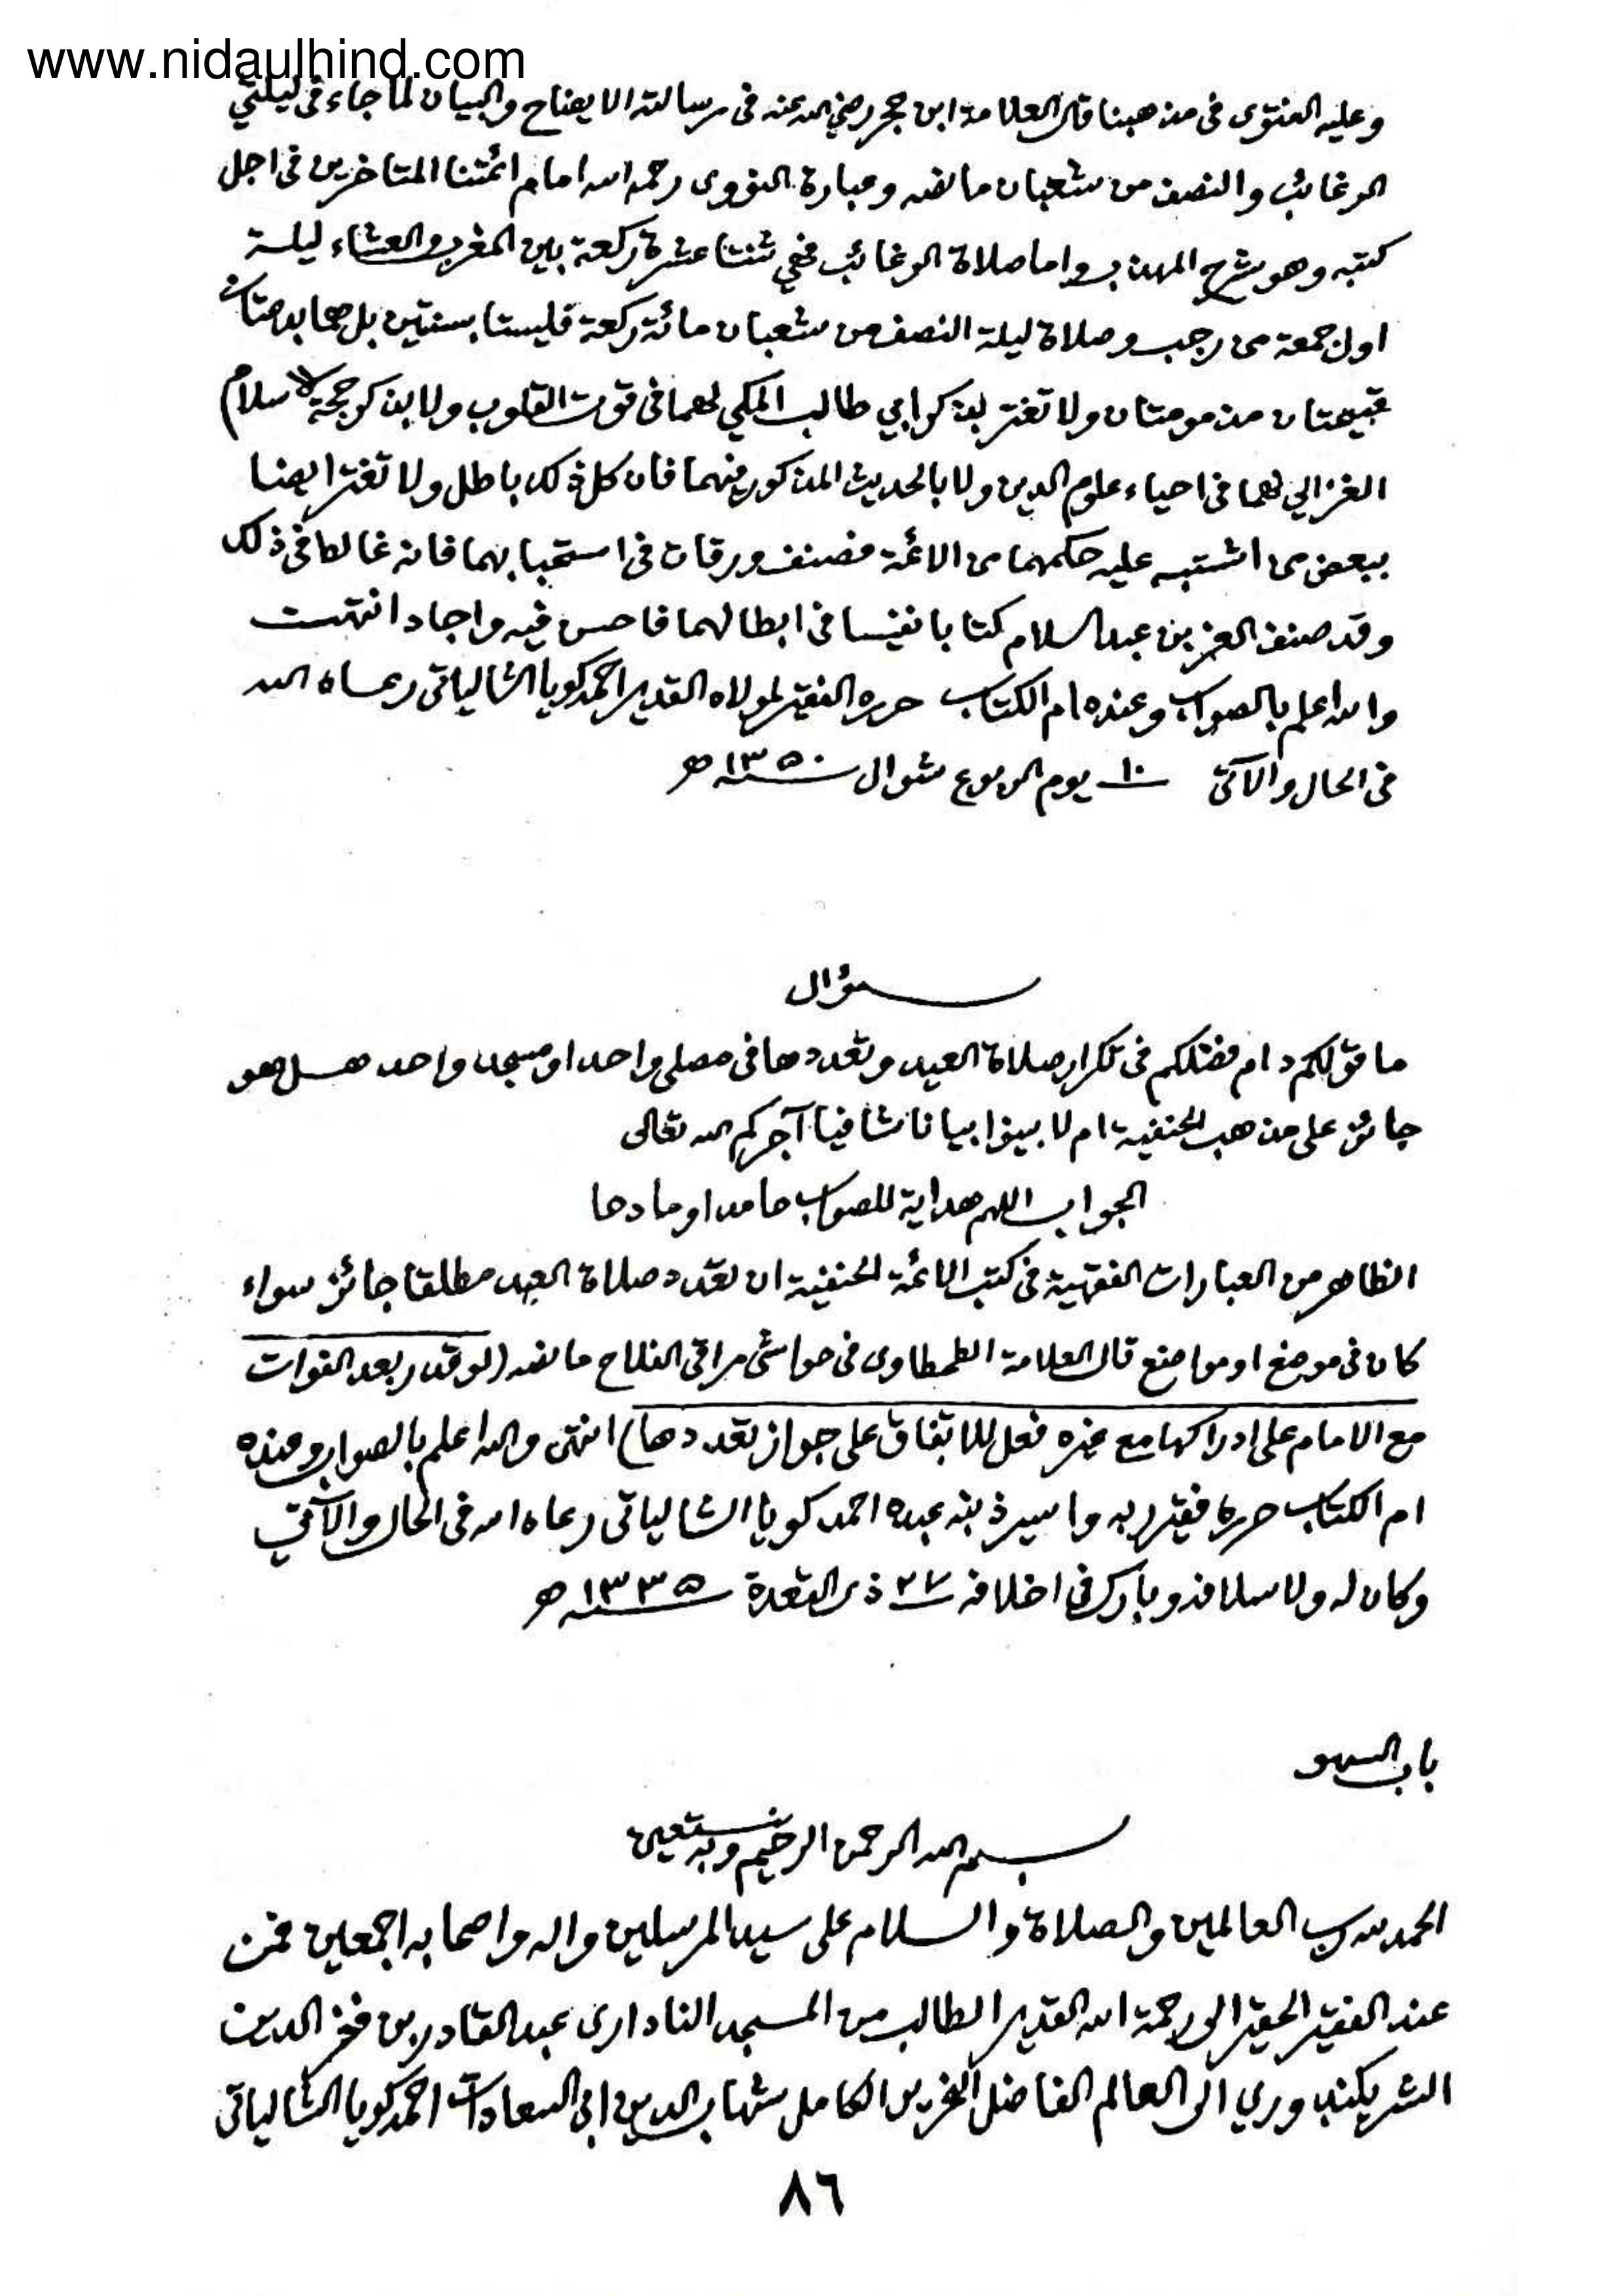 www.nidaulhind.com
وعليه الفتوى في مذهبنا قال العلامة ابن حجر رضي الله عنه في رسالته الايضاح والبيان لما جاء في ليلتي
الرغائب والنصف من شعبان ما نصه وعبارة النووي رحمه الله امام ائمتنا المتاخرين في اجل
كتبه وهو شرح المهذب واما صلاة الرغائب فهي ثنتا عشرة ركعة بين المغرب والعشاء ليلة
اول جمعة من رجب وصلاة ليلة النصف من شعبان مائة ركعة فليستا بسنتين بل هما بدعتان
قبيحتان مذمومتان ولا تغتر بذكر ابي طالب المكي لهما في قوت القلوب ولا بذكر حجة الاسلام
الغزالي لهما في احياء علوم الدين ولا بالحديث المذكور فيهما فان كل ذلك باطل ولا تغتر ايضا
ببعض من اشتبه عليه حكمهما من الائمة فصنف ورقات في استحبابهما فانه غالط في ذلك
وقد صنف العز بن عبد السلام كتابا نفيسا في ابطالهما فاحسن فيه واجاد انتهت
والله اعلم بالصواب وعنده ام الكتاب حرره الفقير لمولاه القدير احمد كويا الشالياتي رعاه الله
في الحال والآتي ١٠ يوم الربوع شوال سنة ١٣٥٠ هـ
سؤال
ما قولكم دام فضلكم في تكرار صلاة العيد وتعددها في مصلى واحد او مسجد واحد هل هو
جائز على مذهب الحنفية ام لا بينوا بيانا شافيا آجركم الله تعالى
الجواب اللهم هداية للصواب حامدا ومادحا
الظاهر من العبارات الفقهية في كتب الائمة الحنفية ان تعدد صلاة العيد مطلقا جائز سواء
كان في موضع او مواضع قال العلامة الطحطاوي في حواشي مراقي الفلاح ما نصه (لو قدر بعد الفوات
مع الامام على ادراكها مع غيره فعل للاتفاق على جواز تعددها) انتهى والله اعلم بالصواب وعنده
ام الكتاب حرره فقير ربه واسير ذنبه عبده احمد كويا الشالياتي رعاه الله في الحال والآتي
وكان له ولاسلافه وبارك في اخلافه ٢٧ ذي القعدة سنة ١٣٣٥ هـ
باب السهو
بسم الله الرحمن الرحيم وبه نستعين
الحمد لله رب العالمين والصلاة والسلام على سيد المرسلين واله واصحابه اجمعين فمن
عند الفقير الحقير الى رحمة الله القدير الطالب من المسجد الناداري عبد القادر بن فخر الدين
الشريكندوري الى العالم الفاضل النحرير الكامل شهاب الدين ابي السعادات احمد كويا الشالياتي
٨٦